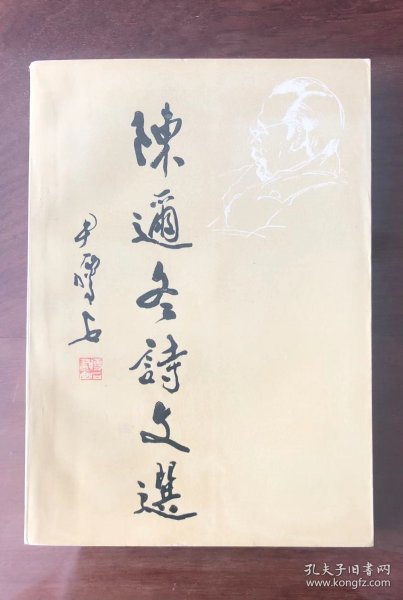 陳邇冬詩文選
尹瘦石
孔夫子旧书网
www.kongfz.com